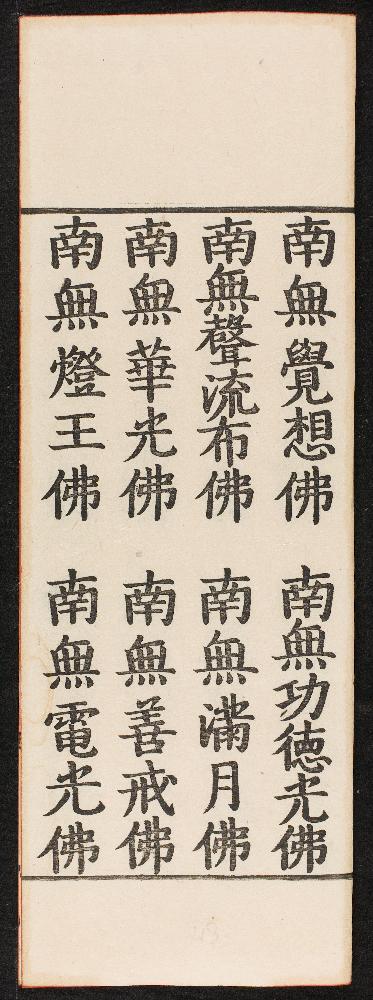 南無覺想佛　南無功德光佛
南無聲流布佛　南無滿月佛
南無華光佛　南無善戒佛
南無燈王佛　南無電光佛